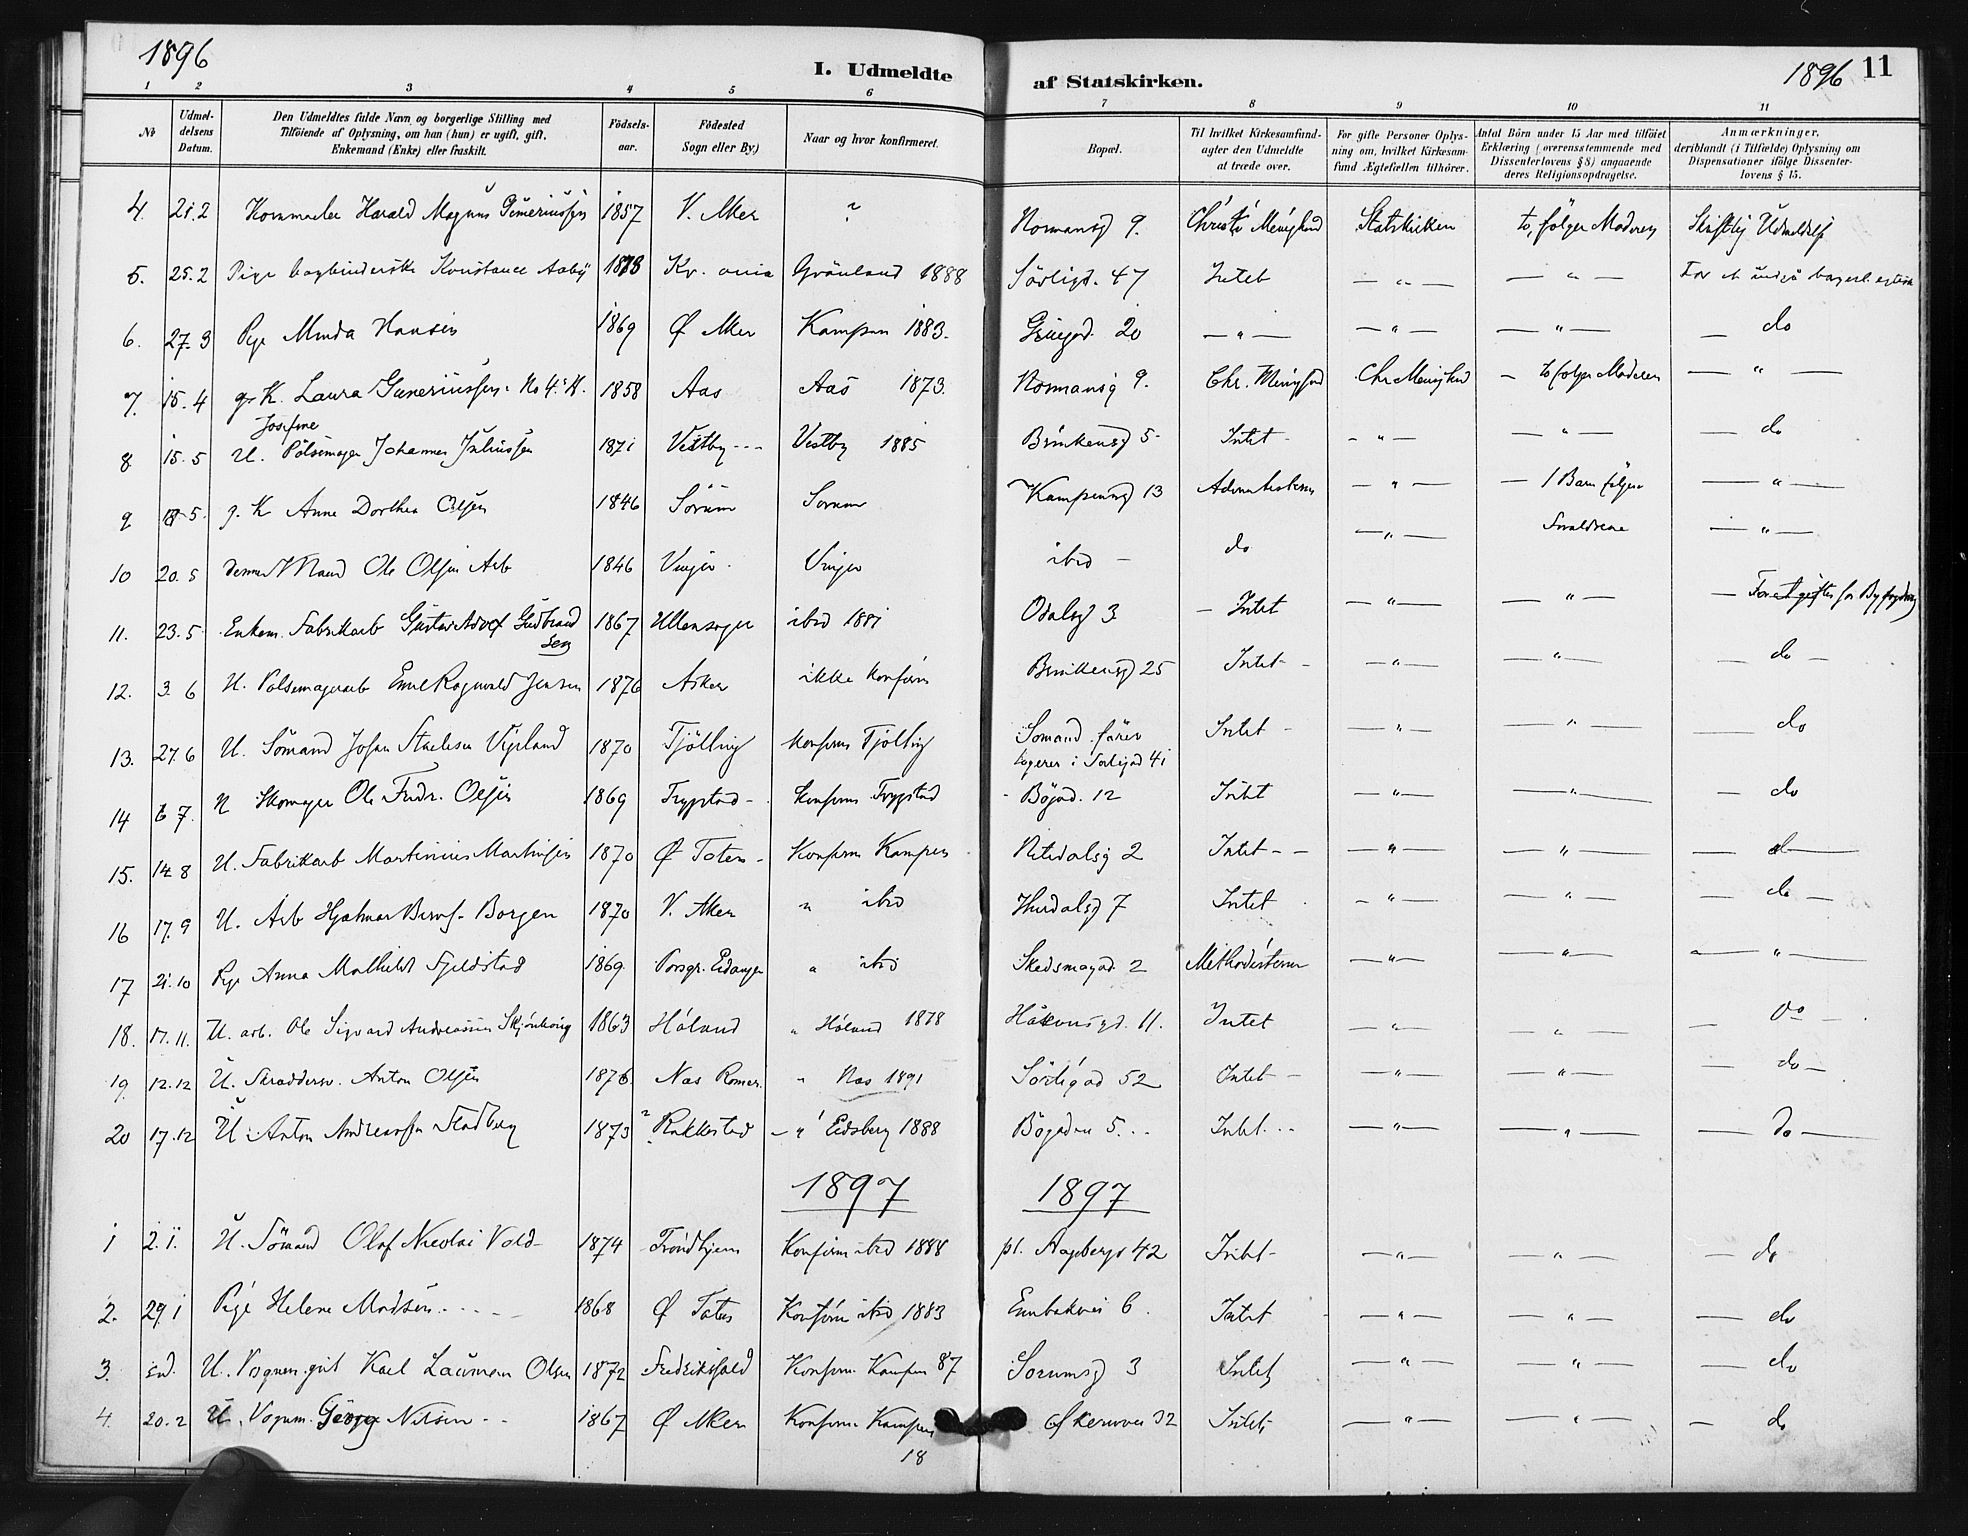 1896
I. Udmeldte af Statskirken.
1896 11
1 2 3 4 5 6 7 8 9 10 11
No
Udmel-
delsens
Datum.
Den Udmeldtes fulde Navn og borgerlige Stilling med
Tilføiende af Oplysning, om han (hun) er ugift, gift,
Enkemand (Enke) eller fraskilt.
Fødsels-
aar.
Fødested
Sogn eller By.)
Naar og hvor konfirmeret.
Bopæl.
Til hvilket Kirkesamfund-
agter den Udmeldte
at træde over.
For gifte Personer Oplys-
ning om, hvilket Kirkesam-
fund Ægtefællen tilhører.
Antal Börn under 15 Aar med tilföiet
Erklæring (overensstemmende med
Dissenterlovens § 8) angaaende
deres Religionsopdragelse.
Anmærkninger,
deriblandt (i Tilfælde) Oplysning om
Dispensationer ifölge Dissenter-
lovens § 15.
4. 21.2 Harald Magnus 1857 V. Aker ? Normansg 9. Statskirken to, følger Moderen Skriftlig Udmeldelse
5. 25.2 Pige Konstance Aaby Grönland 1888 Sörligt. 47 Intet — " — — " —
6. 27.3 Pige Minda Hansen 1869 Ø Aker Kampen 1883. 20 — " — — " — — " — — do
7. 15.4 g. K. Laura Guneriussen No 4. 1858 Aas Aas 1873. Normansg 9. Chr. Menighed Chr Menighed — to følger Moderen — " —
Josefine
8 15.5 U. Pölsemager Johannes Juliussen 1871 Vestby --- Vestby 1885 Brinkensg 5 Intet - — " — — " — — do
9 5. g. K Anne Dorthea Olsen 1846 Sörum Sorum Kampensg 13 Adventisterne — " — — 1 Barn følger — " —
Forældrene
10 20.5 Mand Ole Olsen Arb 1846 Vinger. Vinger ibid — do — " — — " —
11. 23.5. Enkem. Fabrikarb Gustav Adolf Gudbrand
sen 1867 Ullensager ibid 1881 Odalsg 3 — Intet — " — — " —
12. 3 6 U. Polsemagerarb Emil Ragnvald Jensen 1876 Asker ikke konfirm Brinkensg 25 Intet - — " — — " — — do —
13. 27.6 U. Sömand Johan Vigeland 1870 Tjölling konfirm Tjölling Somand farer Intet - — " — — " — — do
logerer i Sorligad 41
14 6 7. U Skomager Ole Fredr. Olsen 1869 Trygstad - konfirm Trygstad Bögad. 12 Intet — " — — " — — do
15. 14 8 U. Fabrikarb Martinius Martinsen 1870 Ø Toten - Konfirm Kampen Nitedalsg 2 Intet - - — " — — " —
16 17.9 U. Arb Hjalmar Borgen 1870 V. Aker " ibid Hurdalsg 7 Intet — " — — " — — do —
17 21.10 Pige Anna Mathilde Fjeldstad 1869 Porsgr. Eidanger " ibid Skedsmogad. 2 Methodisterne — " — — " — — " —
18. 17.11. U. arb. Ole Sigvard Andreassen 1863 Höland " Höland 1878 Håkonsgd. 11. Intet — " — — " — — do —
19. 12.12 U. Skreddersv. Anton Olsen 1876 Nas Romer. " Nas 1891 Sörligad 52 Intet - — " — — " — — do —
20 17.12 U. Anton Andreassen 1873 ? Rakkestad — " Eidsberg 1888 Bögaden 5. - - Intet - - - — " — — " — — do —
1897 1897
1 2.1. U. Sömand Olaf Nicolai Vold - 1874 Trondhjem Konfirm ibid 1888 42 Intet - — " — — " — — do
2. 29 1 Pige Helene Madsen - - - 1868 Ø Toten Konfirm ibid 1883 6. Intet — " — — " — — do
3. sd. U. Karl Olsen 1872 Fredrikshald Konfirm. Kampen 87 Sorumsg 3 Intet — " — — " — — do
4. 20.2 U. Georg Nilsen - - 1867 Ø Aker Konfirm Kampen 32 Intet — " — — " — — do
18